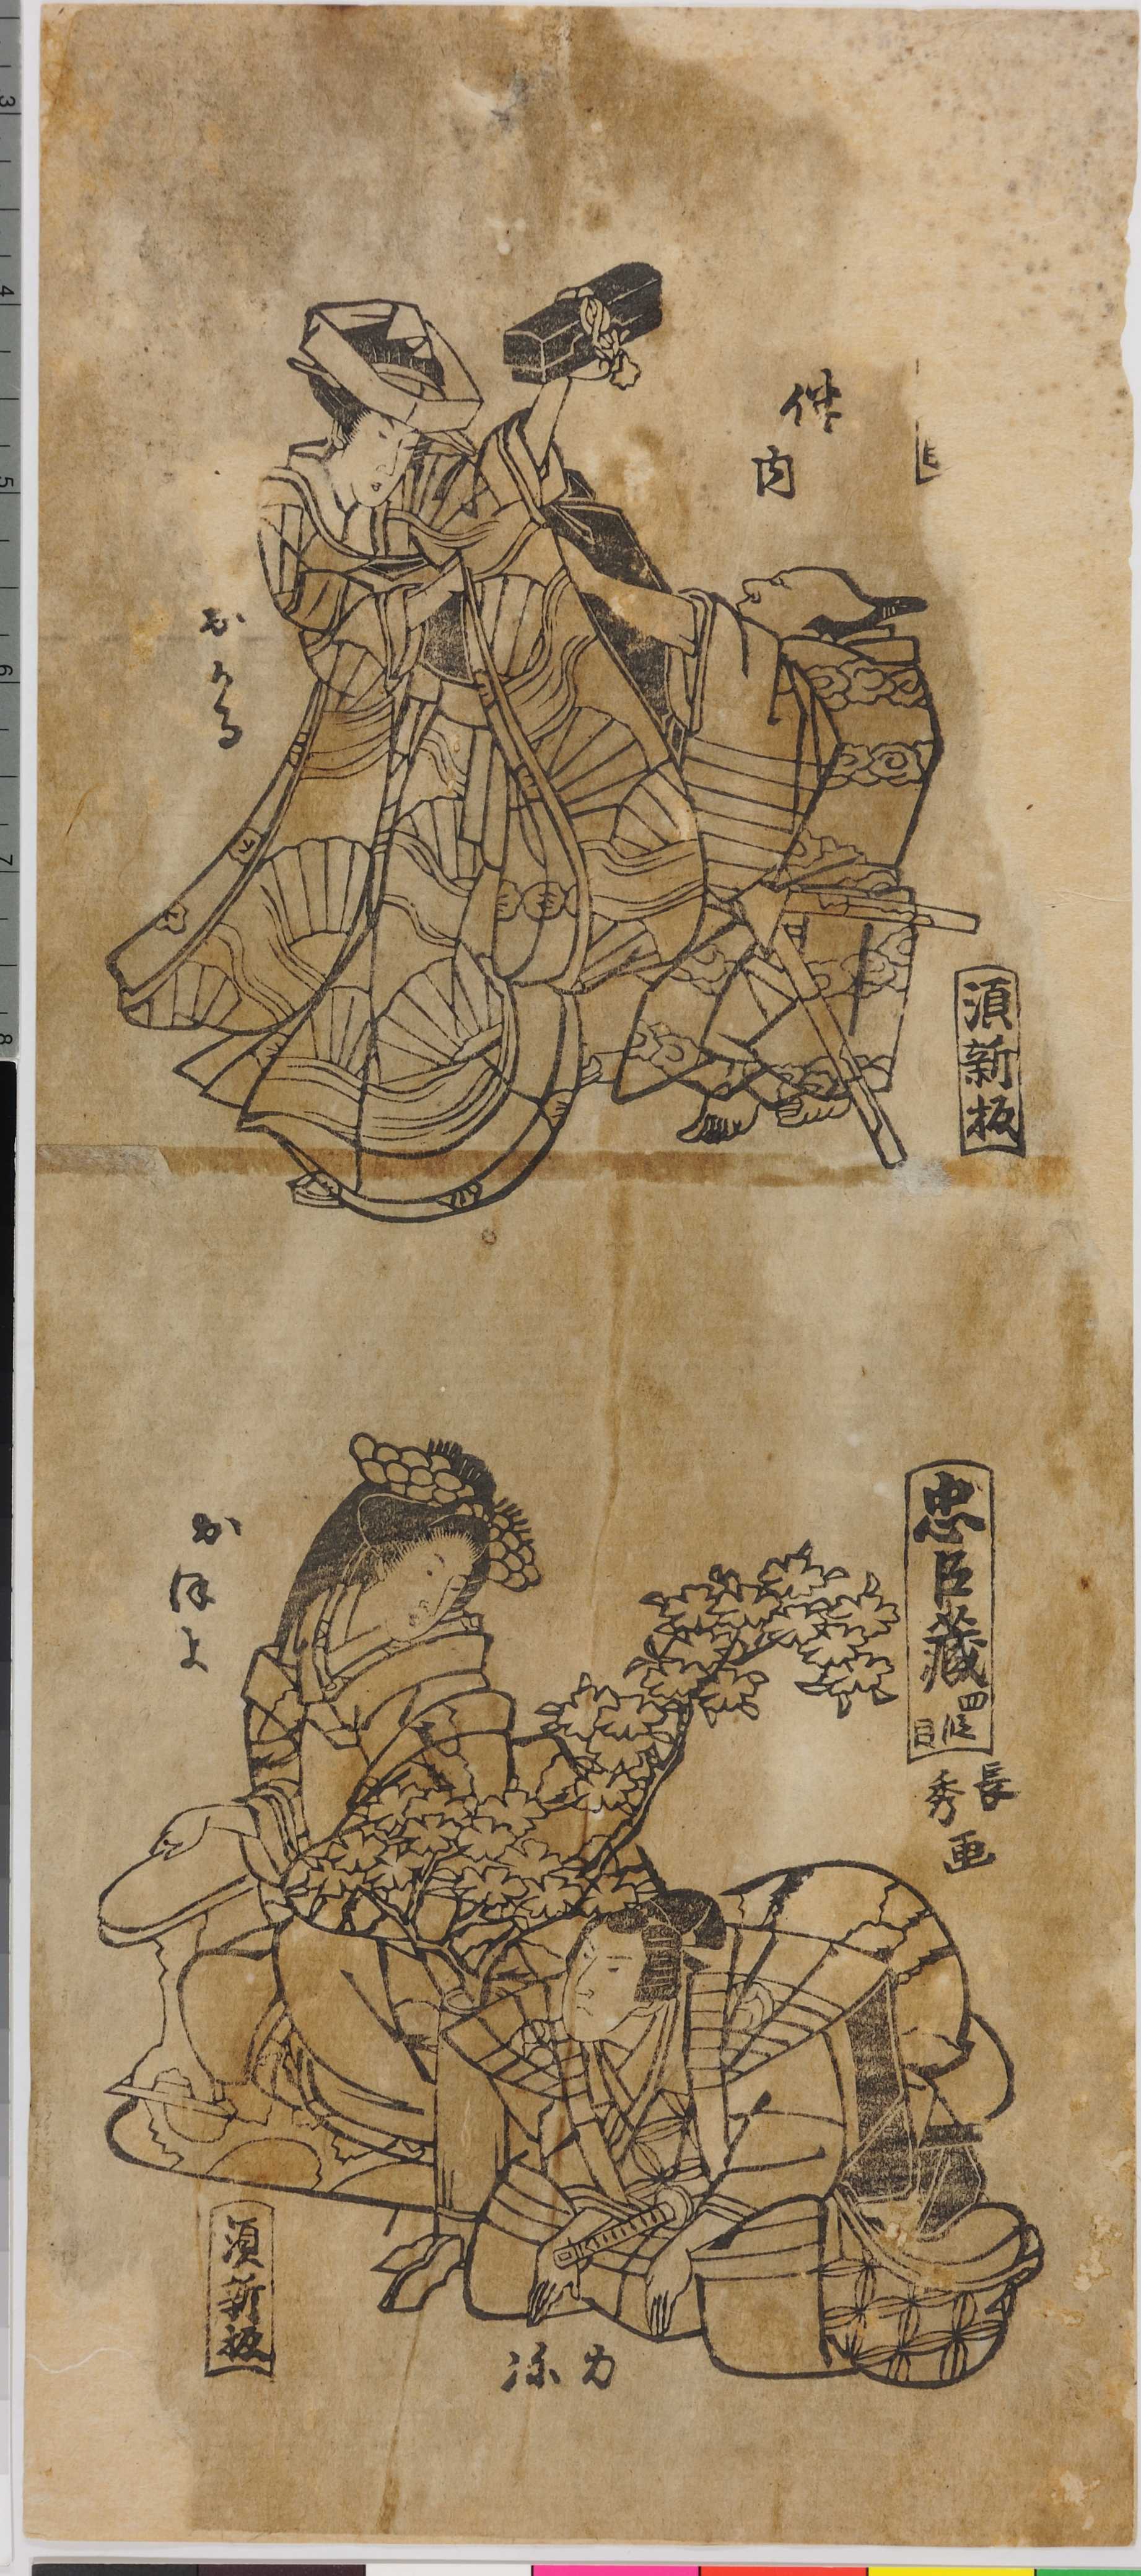 伴内
おかる
須新板
忠臣蔵 四段目
長秀画
かほよ
力弥
須新板